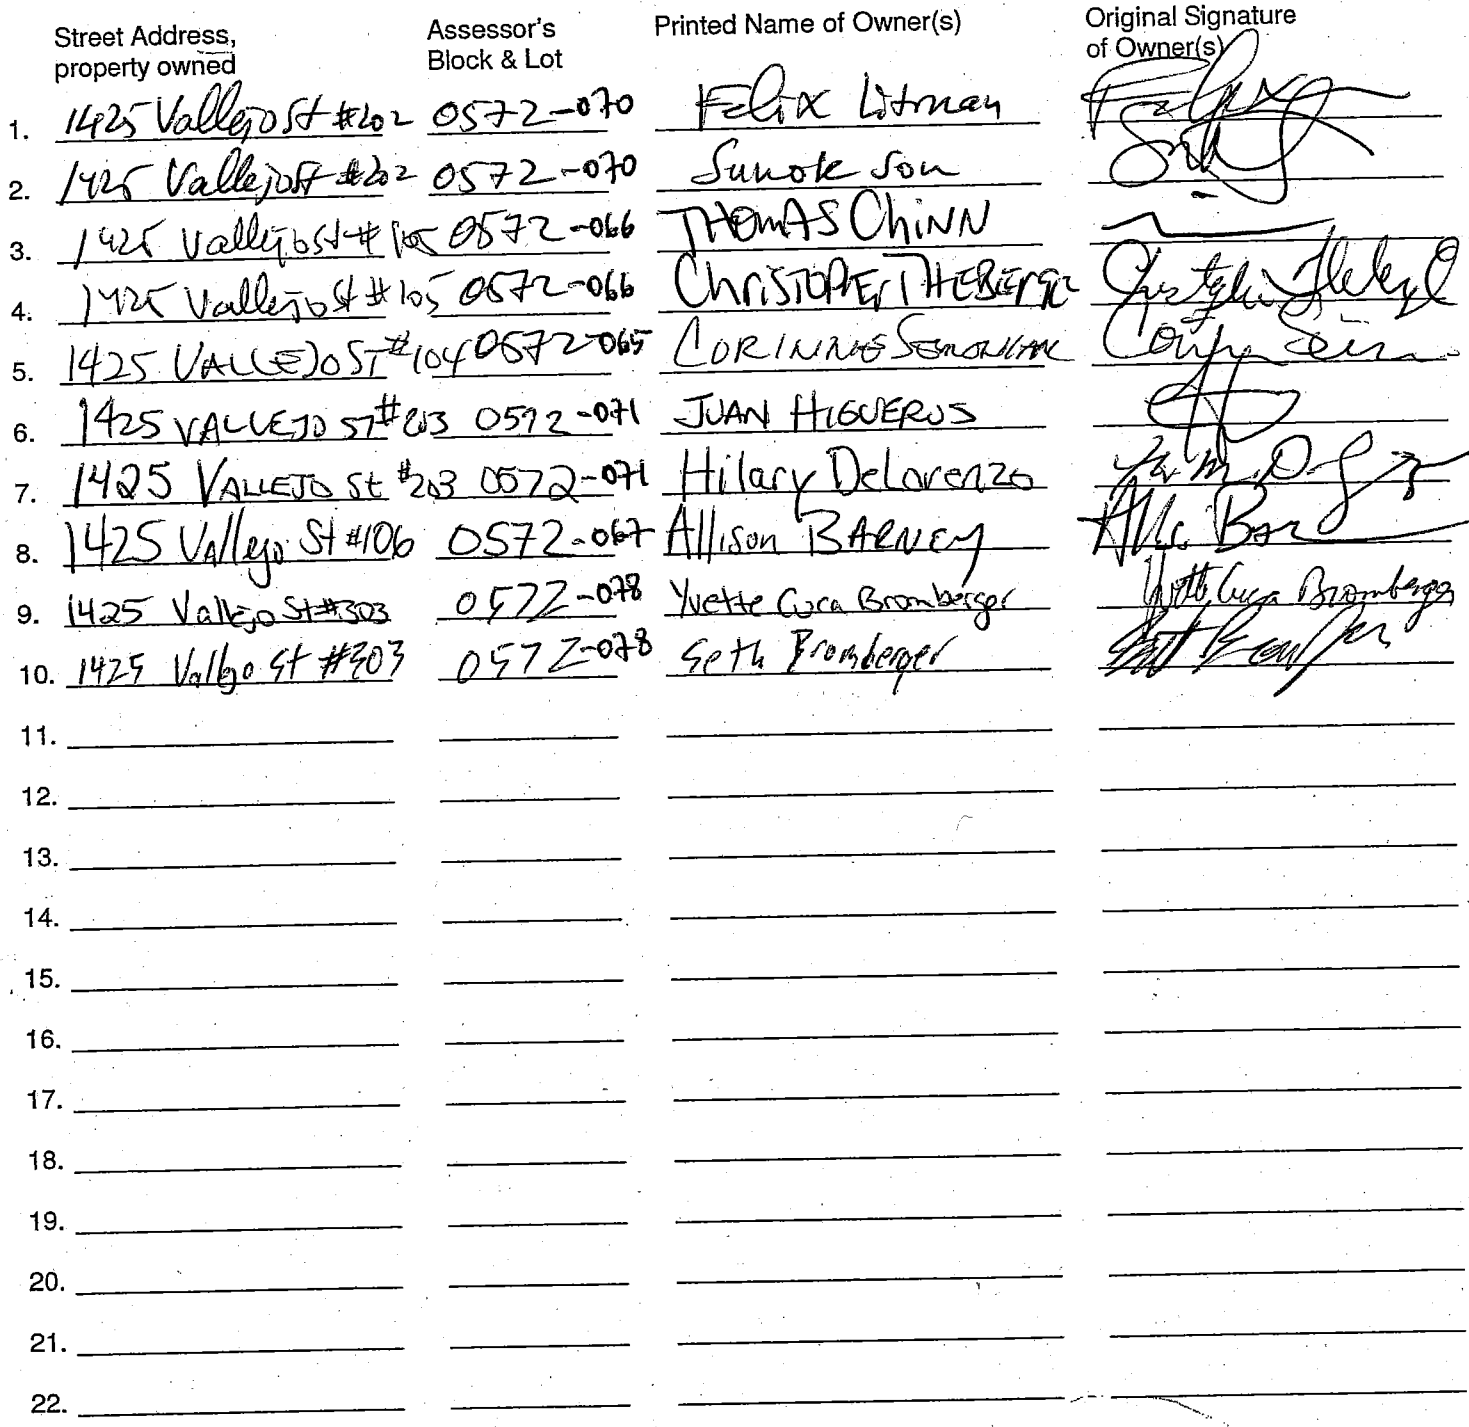 Street Address, property owned Assessor's Block & Lot Printed Name of Owner(s) Original Signature of Owner(s)
1. 1425 Vallejo St #202 0572-070 Felix Litman
2. 1425 Vallejo St #202 0572-070 Sunok Son
3. 1425 Vallejo St #105 0572-066 THOMAS CHINN
4. 1425 Vallejo St #105 0572-066 CHRISTOPHER THEBERGE
5. 1425 VALLEJO ST #104 0572-065 CORINNE
6. 1425 VALLEJO ST #203 0572-071 JUAN HIGUEROS
7. 1425 VALLEJO St #203 0572-071 Hilary DeLorenzo
8. 1425 Vallejo St #106 0572-067 Allison BARNEY
9. 1425 Vallejo St #303 0572-078 Yvette Cuca Bromberger Yvette Cuca Bromberger
10. 1425 Vallejo St #303 0572-078 Seth Bromberger
11.
12.
13.
14.
15.
16.
17.
18.
19.
20.
21.
22.